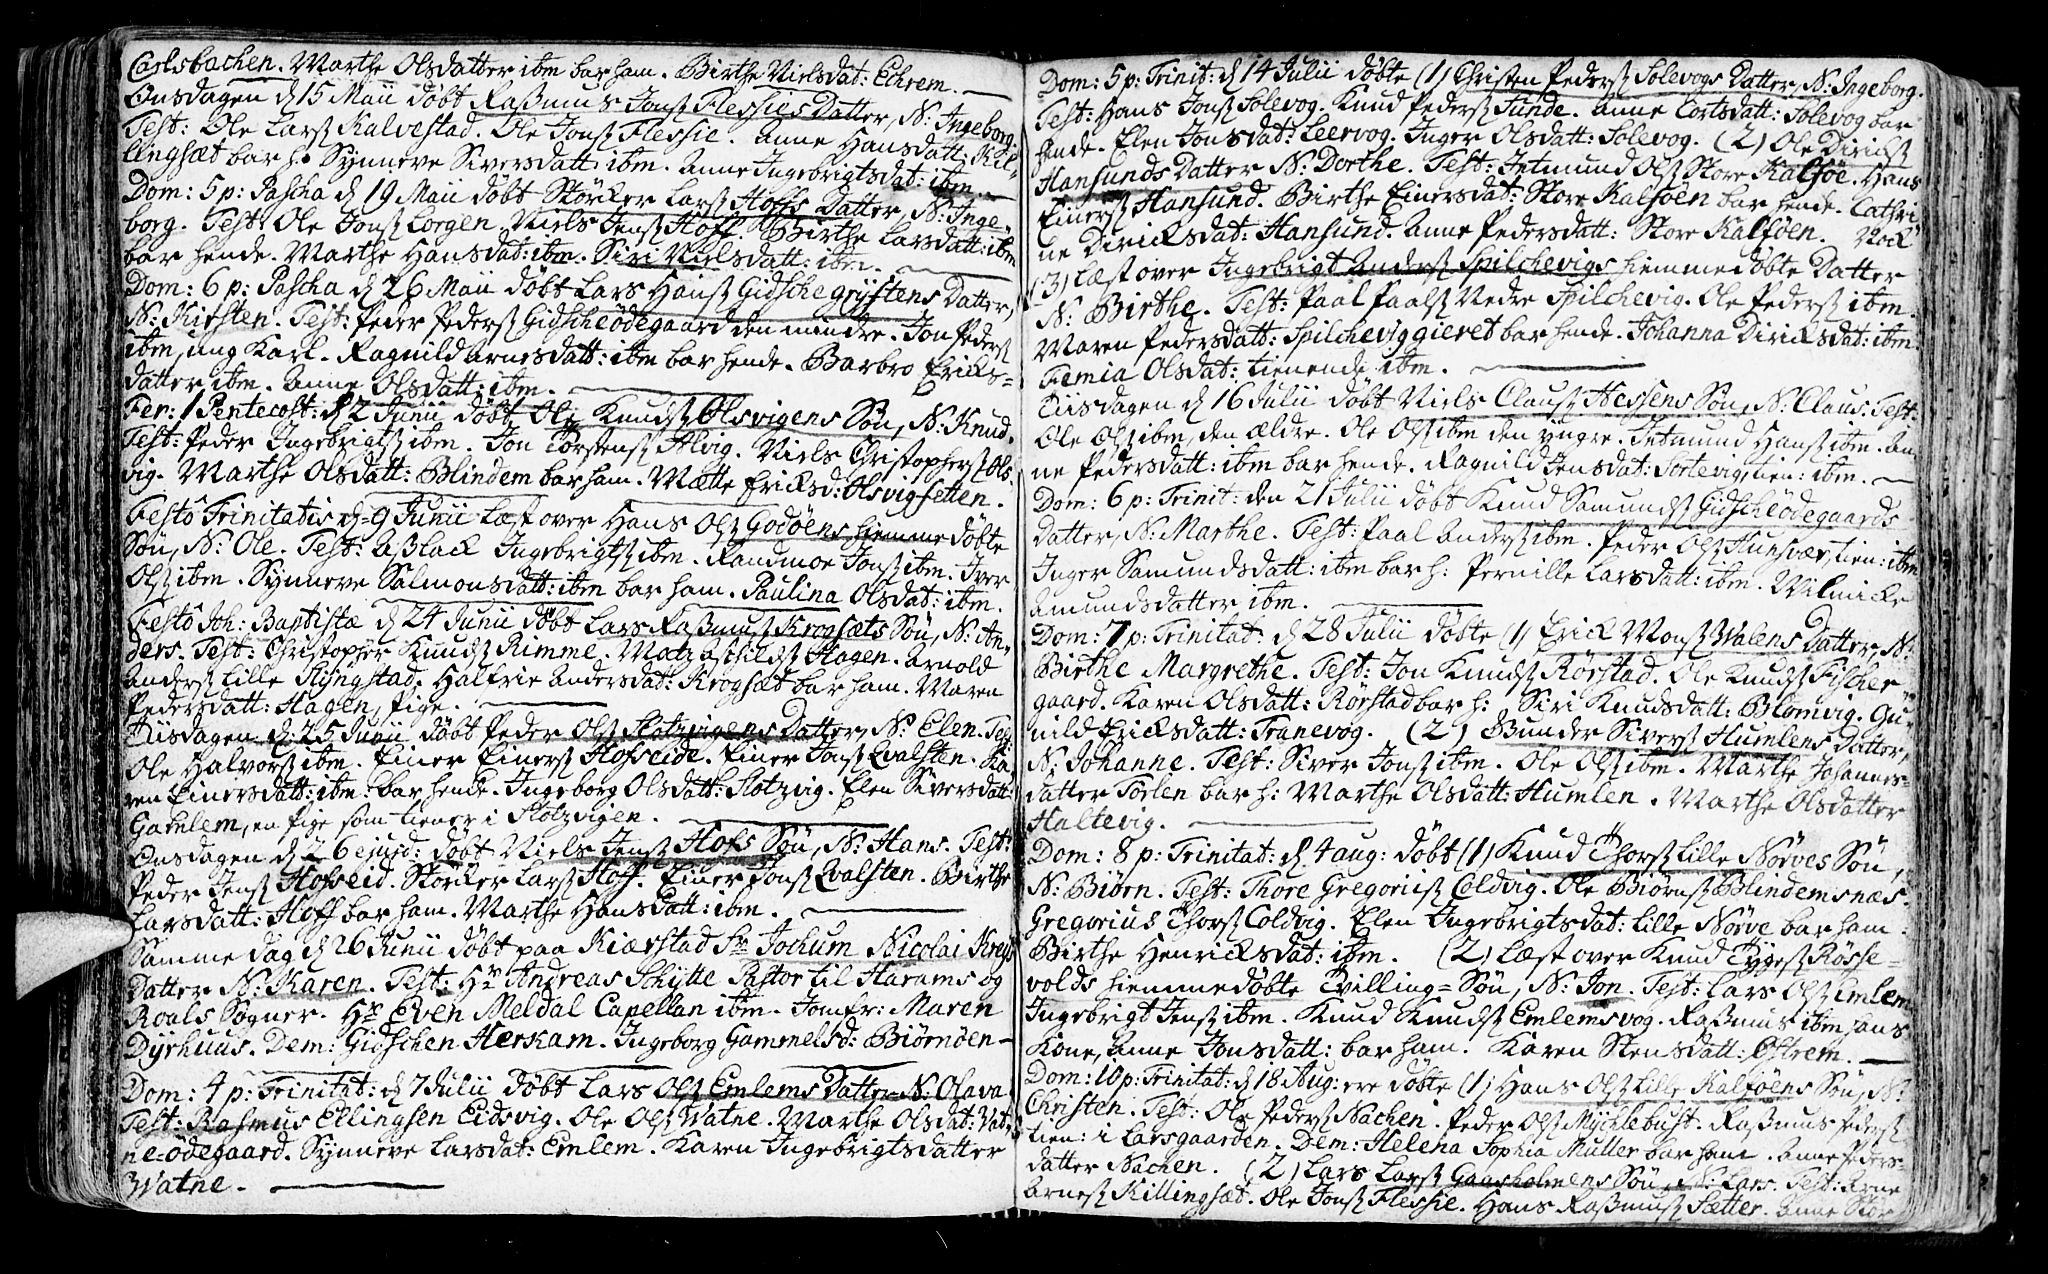 Carlsbachen. Marthe Olsdatter ibm bar ham. Birthe Nielsdat: Echrem.
Onsdagen d 15 Maii döbt Rasmus Jonsß Flessies Datter, N: Ingeborg.
Test: Ole Larsß Kalvestad. Ole Jonsß Flessie. Anne Hansdatt: Kil-
lingsæt bar h: Synneve Siversdatt: ibm. Anne Ingebrigtsdat: ibm.
Dom: 5 p: Pascha d 19 Maii döbt Störker Larsß Hoffs Datter, N: Inge-
borg. Test: Ole Jonsß Lorgen. Niels Jensß Hoff. Birthe Larsdatt: ibm
bar hende. Marthe Hansdat: ibm. Siri Nielsdatt: ibm.
Dom: 6 p: Pascha d 26 Maii döbt Lars Hansß Gidschegrÿftens Datter,
N: Kirsten. Test: Peder Pedersß Gidscheödegaard den mindre. Jon Pedersß
ibm, ung Karl. Ragnild Arnesdatt: ibm bar hende. Barbro Ericks-
datter ibm. Anne Olsdatt: ibm.
Fer: 1 Pentecost: d 2 Junii döbt Ole Knudsß Olsvigens Sön, N: Knud.
Test: Peder Ingebrigtsß ibm. Jon Torstensß Alvig. Niels Christophersß Ols-
vig. Marthe Olsdatt: Blindem bar ham. Mætte Ericksd: Alvigsetten.
Festô Trinitatis d 9 Junii læst over Hans Olsß Godöens hiemmedöbte
Sön, N: Ole. Test: Aslack Ingebrigtsß ibm. Randmoe Jonsß ibm. Iver
Olsß ibm. Synneve Salmonsdatt: ibm bar ham. Paulina Olsdat: ibm.
Festô Joh: Baptistæ d 24 Junii döbt Lars Rasmusß Krogsæts Sön, N: An-
ders. Test: Christopher Knudsß Rimme. Matz Aschildsß Hagen. Arnold
Andersß Lille Slÿngstad. Halfrie Andersdat: Krogsæt bar ham. Maren
Pedersdatt: Hagen, pige.
Tiisdagen d 25 Junii döbt Peder Olsß Slotzvigens Datter, N: Elen. Test:
Ole Halvorsß ibm. Einer Einersß Hofseide. Einer Jonsß Qvalsten. Ka-
ren Einersdatt: ibm bar hende. Ingeborg Olsdatt: Slotzvig. Elen Siversdatt:
Gamlem, en pige som tiener i Slotzvigen.
Onsdagen d 26 ejusd: döbt Niels Jensß Hofs Sön, N: Hans. Test:
Peder Jensß Hofseid. Störker Larsß Hoff. Einer Jonsß Qvalsten. Birthe
Larsdatt: Hoff bar ham. Marthe Hansdatt: ibm.
Samme dag d 26 Junii döbt paa Kiærstad Sr Jochum Nicolai Krogs
Datter N: Karen. Test: Hr Andreas Schÿtte Pastor til Harams og
Roals Sogner. Hr Even Meldal Capellan ibm. Jomfr: Maren
Dÿrhuus. Dem: Gidschen Herkam. Ingeborg Gammelsd: Biörnöen
Dom: 4 p: Trinitat: d 7 Julii döbt Lars Olsß Emlems Datter N: Olava
Test: Rasmus Ellingsen Eidsvig. Ole Olsß Watne. Marthe Olsdat: Vat-
ne-ödegaard. Synneve Larsdat: Emlem. Karen Ingebrigtsdatter
Watne.
Dom: 5 p: Trinit: d 14 Julii döbte (1) Christen Pedersß Solevogs Datter, N: Ingeborg.
Test: Hans Jonsß Solevog. Knud Pedersß Sunde. Anne Cortsdatt: Solevog bar
hende. Elen Jonsdat: Leervog. Inger Olsdatt: Solevog. (2) Ole Dirichsß
Hansunds Datter N: Dorthe. Test: Jetmund Olsß Store Kalföe. Hans
Einersß Hansund. Birthe Einersdat: Store Kalföen bar hende. Cathri-
ne Diricksdat: Hansund. Anne Pedersdatt: Store Kalföen. Nock
(3) læst over Ingebrigt Andersß Spilchevigs hiemmedöbte Datter
N: Birthe. Test: Paal Paalsß Nedre Spilchevig. Ole Pedersß ibm.
Maren Pedersdatt: Spilcheviggieret bar hende. Johanna Diricksdat: ibm.
Femia Olsdat: tienende ibm.
Tiisdagen d 16 Julii döbt Niels Clausß Hessens Sön, N: Claus. Test:
Ole Olsß ibm, den ældre. Ole Olsß ibm den yngre. Jetmund Hansß ibm. An-
ne Pedersdatt: ibm bar hende. Ragnild Jensdat: Sortevig, tien: ibm.
Dom: 6 p: Trinit: den 21 Julii döbt Knud Samundsß Gidscheödegaards
Datter, N: Marthe. Test: Paal Andersß ibm. Peder Olsß Hunsvær, tien: ibm
Inger Samundsdatt: ibm bar h: Pernille Larsdatt: ibm. Wilmicke
Amundsdatter ibm.
Dom: 7 p: Trinitat: d 28 Julii döbte (1) Erick Monsß Walens Datter, N:
Birthe Margrethe. Test: Jon Knudsß Rörstad. Ole Knudsß Fischer-
gaard. Karen Olsdatt: Rörstad bar h: Siri Knudsdatt: Blomvig. Gu-
nild Ericksdatt: Tranevog. (2) Gunder Siversß Humlens Datter,
N: Johanne. Test: Siver Jonsß ibm. Ole Olsß ibm. Marthe Johannes-
datter Törlen bar h: Marthe Olsdatt: Humlen. Marthe Olsdatter
Haltevig.
Dom: 8 p: Trinitat: d 4 Aug: döbt (1) Knud Thorsß Lille Nörves Sön,
N: Biörn. Test: Thore Gregoriisß Coldvig. Ole Biörnsß Blindemsnæs.
Gregorius Thorsß Coldvig. Elen Ingebrigtsdat: Lille Nörve bar ham.
Birthe Henricksdat: ibm. (2) Læst over Knud Tÿgesß Rösse-
volds hiemmedöbte Tvilling-Sön, N: Jon. Test: Lars Olsß Emlem
Ingebrigt Jensß ibm. Knud Knudsß Emlemsvog. Rasmus ibm hans
Kone, Anne Jonsdatt: bar ham. Karen Stensdatt: Östrem.
Dom: 10 p: Trinitat: d 18 Aug: ere döbte (1) Hans Olsß Lille Kalföens Sön, N:
Christen. Test: Ole Pedersß Nachen. Peder Olsß Mÿchlebust. Rasmus Pedersß
tien: i Larsgaarden. Dem: Helena Sophia Muller bar ham. Anne Peders-
datter Nachen. (2) Lars Larsß Gaasholmens Sön, N: Lars. Test: Arne
Arnesß Killingsæt. Ole Jonsß Flessie. Hans Rasmusß Sætter. Anne Stör-